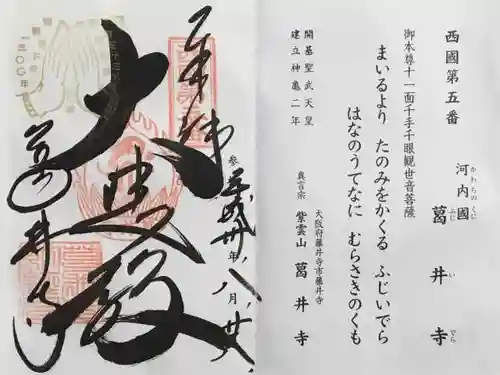 西國第五番
河内國 葛井寺
かわちのくに ふじ い でら
御本尊十一面千手千眼観世音菩薩
まいるより たのみをかくる ふじいでら
はなのうてなに むらさきのくも
開基聖武天皇
建立神亀二年
大阪府藤井寺市藤井寺
真言宗 紫雲山 葛井寺
奉拝
参 平成廿年八月廿八
大悲殿
葛井寺
一三〇〇年